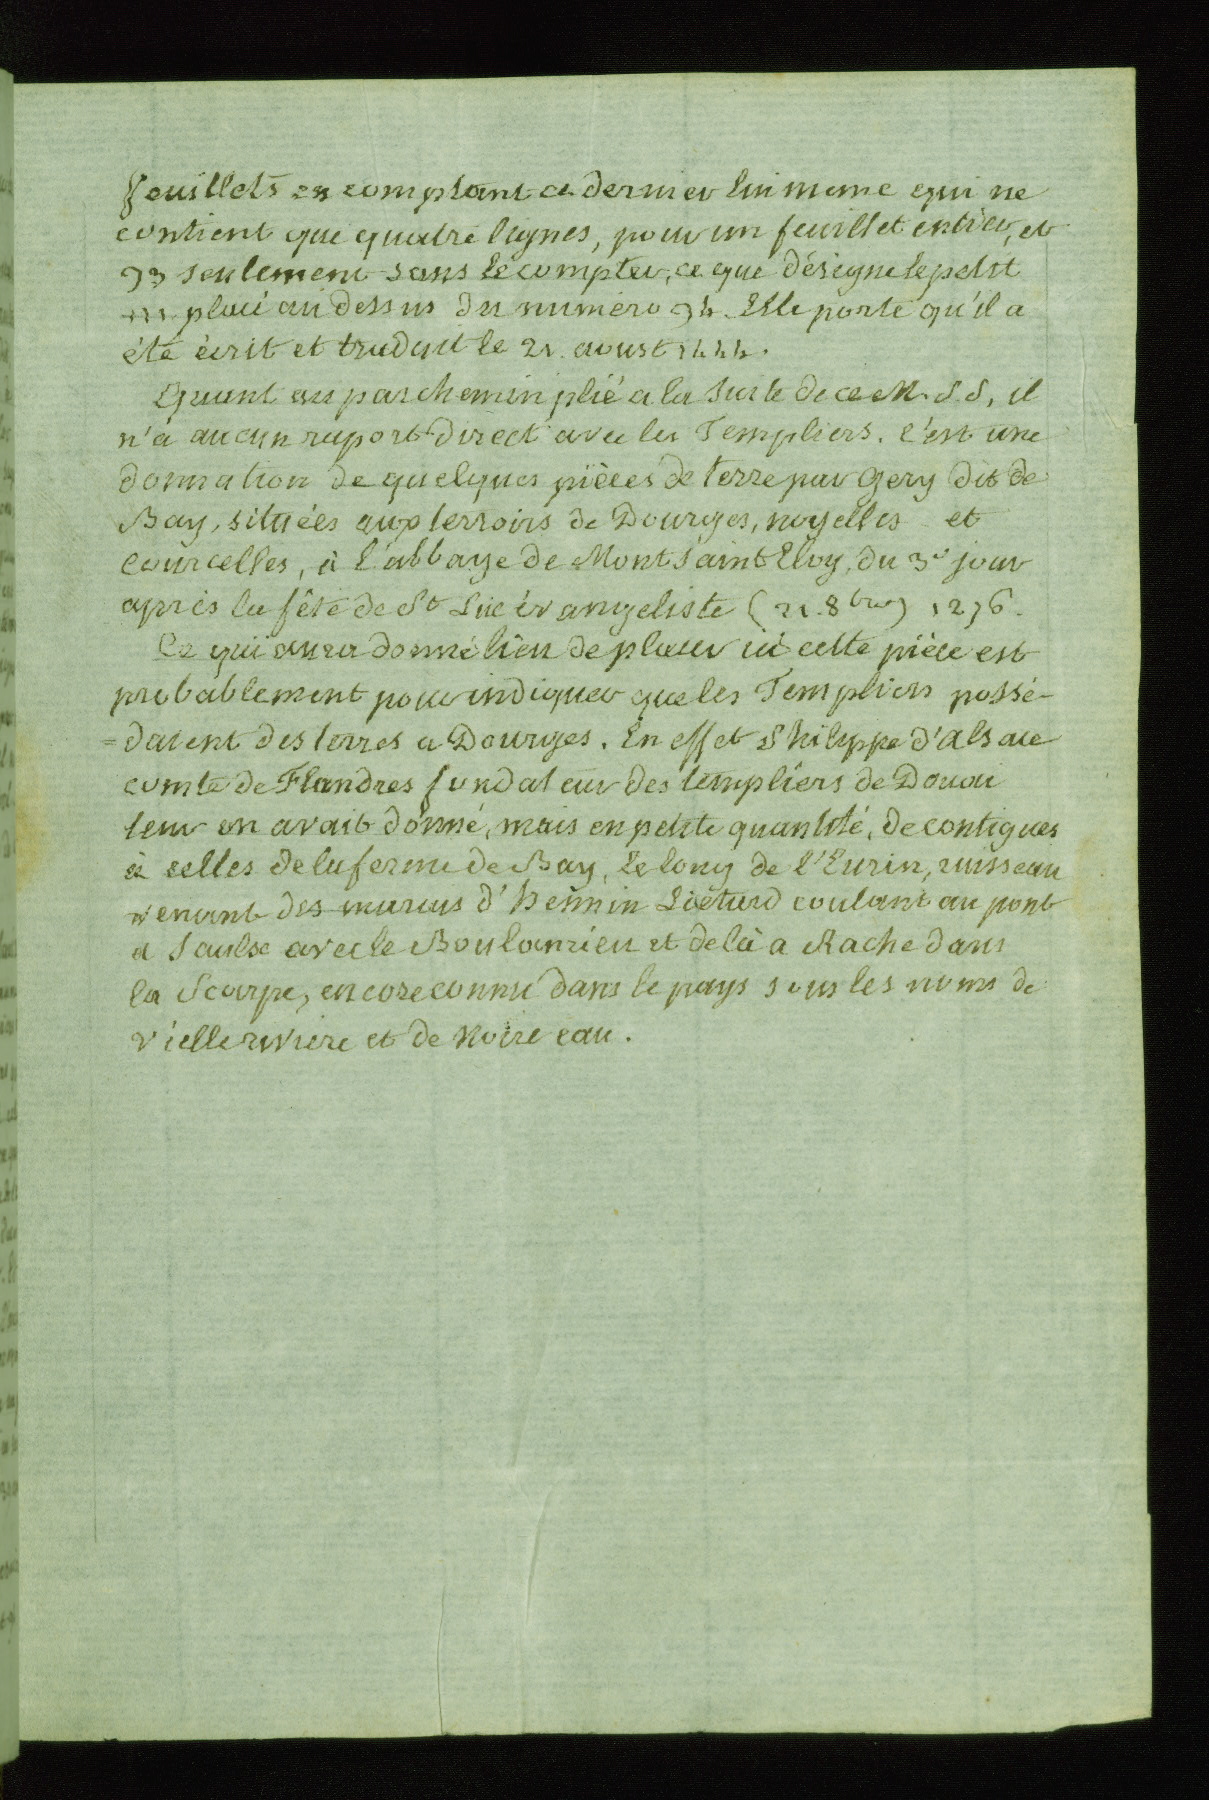 feuillets en comptant ce dernier lui meme qui ne
contient que quatre lignes, pour un feuillet entier, et
93 seulement sans le compter, ce que désigne le petit
m placé au dessus du numéro 94. Elle porte qu'il a
été écrit et traduit le 21 aoust 1444.
Quant au parchemin plié a la suite de ce M.S.S, il
n'a aucun raport direct avec les Templiers. c'est une
donnation de quelques pièces de terre par Gery dit de
Bay, situées aux terroirs de Dourges, noyelles et
Courcelles, à l'abbaye de Mont Saint Eloy, du 3e jour
après la fête de St Luc évangeliste (21. 8bre) 1276.
Ce qui aura donné lieu de placer ici cette pièce est
probablement pour indiquer que les Templiers possé-
=daient des terres a Dourges. En effet Philippe d'alsace
comte de Flandres fondateur des templiers de Douai
leur en avait donné, mais en petite quantité, de contigues
à celles de la ferme de Bay, le long de l'Eurin, ruisseau
venant des marais d'hennin Lietard coulant au pont
a Saulse avec le Boulenrieu et delà a Rache dans
la Scarpe, encore connu dans le pays sous les noms de
vielle riviere et de Noire eau.